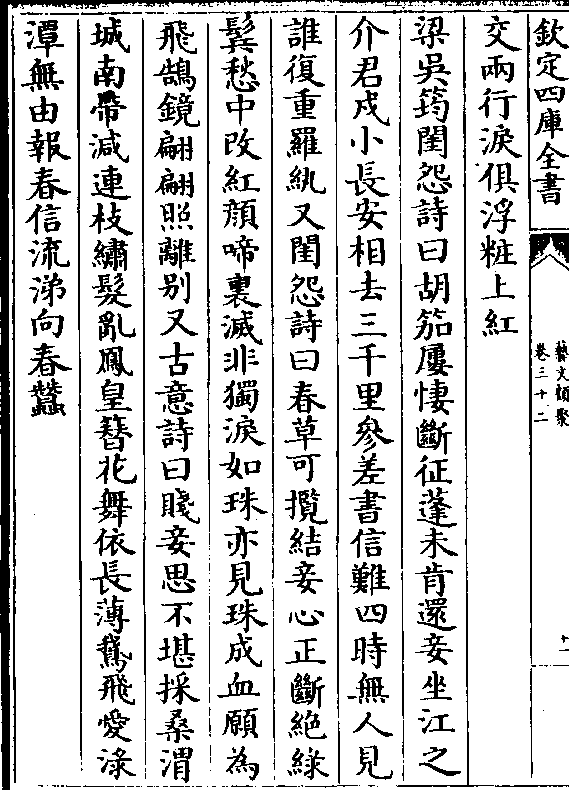 欽定四庫全書
藝文類聚
卷三十二
十一
交兩行淚俱浮粧上紅
梁吳筠閨怨詩曰胡笳屢悽斷征蓬未肯還妾坐江之
介君戍小長安相去三千里參差書信難四時無人見
誰復重羅紈又閨怨詩曰春草可攬結妾心正斷絶綠
鬢愁中改紅顔啼裏滅非獨淚如珠亦見珠成血願為
飛鵲鏡翩翩照離别又古意詩曰賤妾思不堪採桑渭
城南帶減連枝繡髮亂鳳皇簪花舞依長薄蛾飛愛渌
潭無由報春信流涕向春蠶